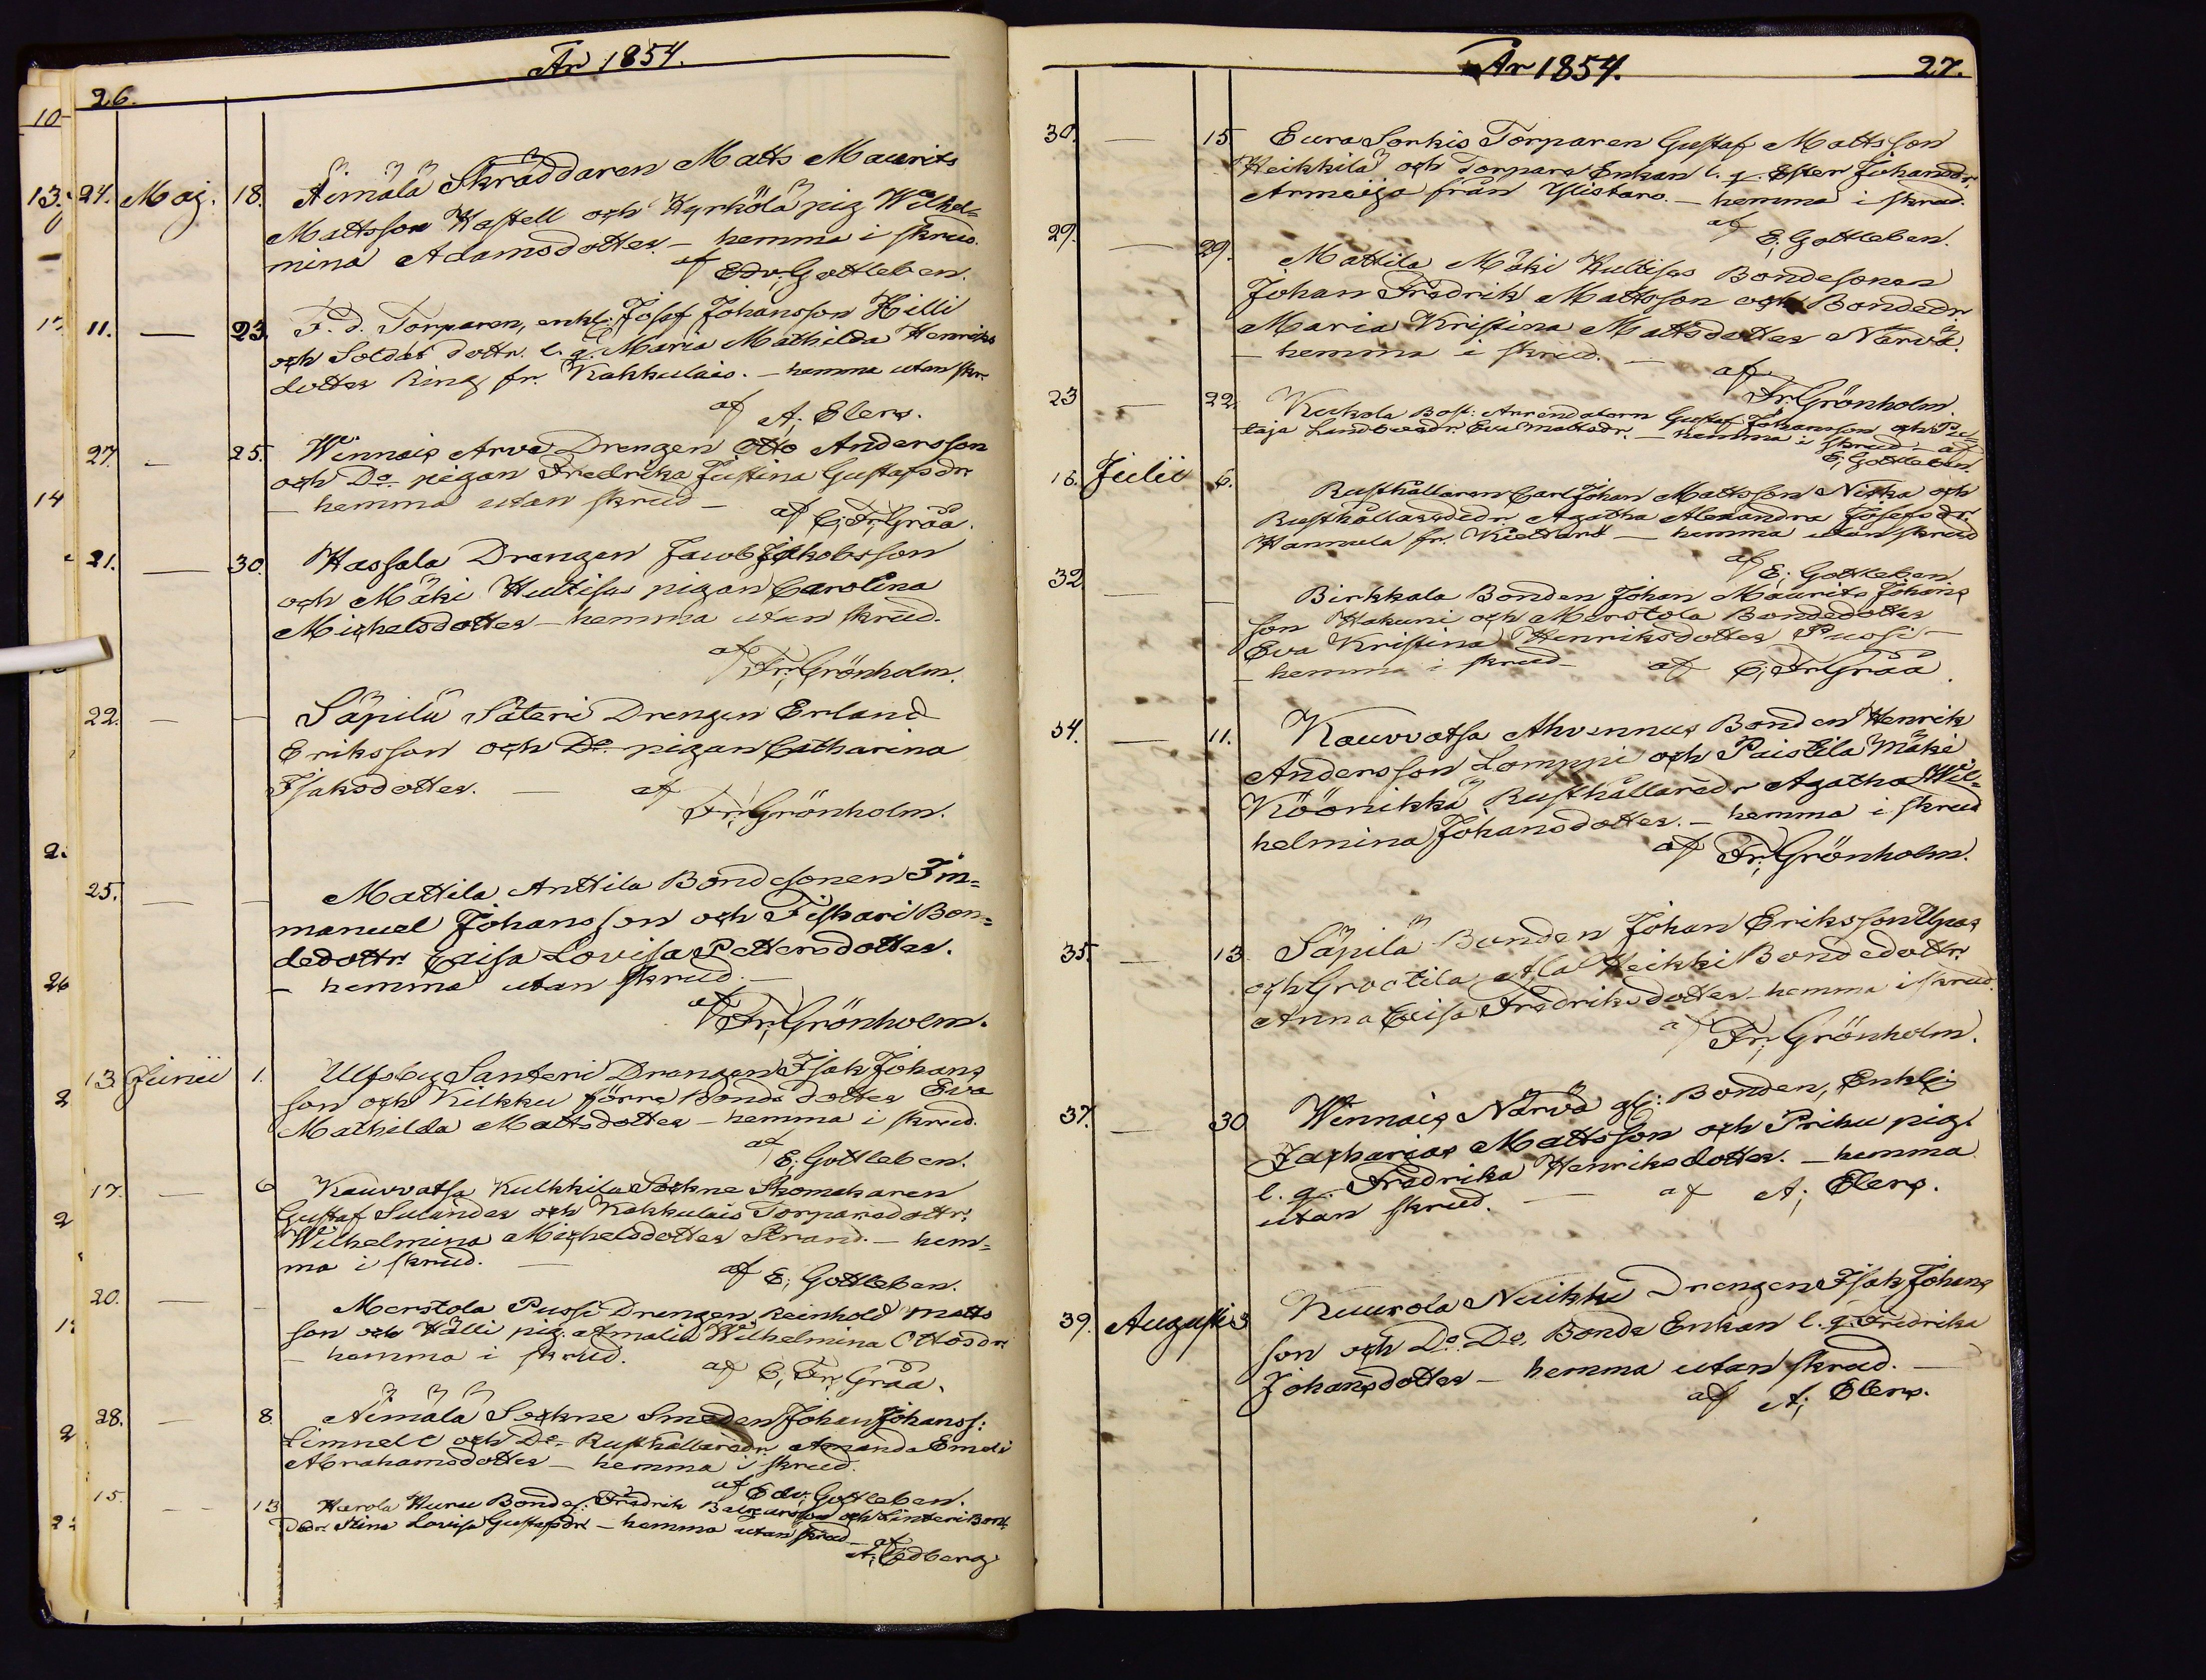 År 1854.
26.
24. Maj. 18. Äimälä Skräddaren Matts Maurits
Mattsson Kastell och Kyrkölä pig Wilhel=
mina Adamsdotter. — hemma i skrud.
af Edv. Gottleben.
11. — 23. F. d. Torparen, enkl. Josef Johansson Hilli
och Soldat dottr. l. q. Maria Mathilda Henriks
dotter Ring fr. Kakkulais. — hemma utan skr.
af A; Elers.
27. — 25. Winnais Arva Drengen Otto Andersson
och Do pigan Fredrika Justina Gustafsdr
— hemma utan skrud —
af C; Fr; Gråå.
21. — 30. Hassala Drengen Jacob Jakobsson
och Mäki Hultisus pigan Carolina
Michelsdotter — hemma utan skrud.
af Fr; Grönholm.
22. — — Säpilä Säteri Drengen Erland
Eriksson och Do pigan Catharina
Isaksdotter. — af
Fr; Grönholm.
25. — — Mattila Anttila Bondesonen Im=
manuel Johansson och Fiskari Bon=
dedottr. Caisa Lovisa Pettersdotter.
— hemma utan skrud. —
af Fr; Grönholm.
13 Junii 1. Ulfsby Santeri Drengen Isak Johans
son och Kilkku Jörre Bonde dotter Eva
Mathilda Mattsdotter — hemma i skrud.
af E; Gottleben.
17. — 6 Kauvvatsa Kulkkila Sockne Skomakaren
Gustaf Sulander och Kakkulais Torparedottr:
Wilhelmina Michelsdotter Strand. — hem=
ma i skrud. —
af E; Gottleben.
20. — — Merstola Pussi Drengen Reinhold Matts
son och Hälli pig. Amalia Wilhelmina Ottosdr
— hemma i skrud.
af C; Fr; Gråå.
28. — 8. Äimälä Sockne Smeden Johan Johanss:
Limnell och Do Rusthållaredr. Amanda Emeli
Abrahamsdotter — hemma i skrud.
af Edv; Gottleben.
15. — 13 Harola Huru Bondes. Fredrik och Linteri Bond
dr. Stina Lovisa Gustafsdr. — hemma utan skrud — af
A; Edberg
År 1854. 27.
30. — 15. Eura Sorkis Torparen Gustaf Mattsson
Heikkilä och Torpare Enkan l. q. Ester Johansdr.
Armeija från Ylistaro. — hemma i skrud.
af E; Gottleben.
29. — 29. Mattila Mäki Hultisus Bondesonen
Johan Fredrik Mattsson och Bondedr.
Maria Kristina Mattsdotter Närvä.
— hemma i skrud. —
af Fr; Grönholm.
23 — 22. Kukola Bost: Arrendatorn Gustaf Johansson och
Landbondedr. Eva Mattsdr. — hemma i skrud — af
E; Gottleben.
16. Julii 6. Rusthållaren Carl Johan Mattsson Niska och
Rusthållaredr. Agatha Alexandra Josefsdr.
Hannula fr. — hemma utan skrud
af E; Gottleben
32 — — Birkkala Bonden Johan Maurits Johans
son Hakuni och Merstola Bondedotter
Eva Kristina Henriksdotter Pussi —
— hemma i skrud — af C; Fr; Gråå.
34. — 11. Kauvvatsa Ahvennus Bonden Henrik
Andersson Lomppi och Paistila Mäki
Köönikkä Rusthållaredr Agatha Wil=
helmina Johansdotter. — hemma i skrud
af Fr; Grönholm.
35. — 13. Säpilä Bonden Johan Eriksson Uppa
och Grootila Ala Heikki Bondedottr.
Anna Caisa Fredriksdotter — hemma i skrud.
af Fr; Grönholm.
37. — 30 Winnais Närvä gf: Bonden, Enkli
Zacharias Mattsson och Prihu pig.
l. q. Fredrika Henriksdotter. — hemma
utan skrud. — af A; Elers.
39. Augusti 3 Kuurola Nuikki Drengen Isak Johans
son och Do. Do. Bonde Enkan l. q. Fredrika
Johansdotter — hemma utan skrud. —
af A; Elers.